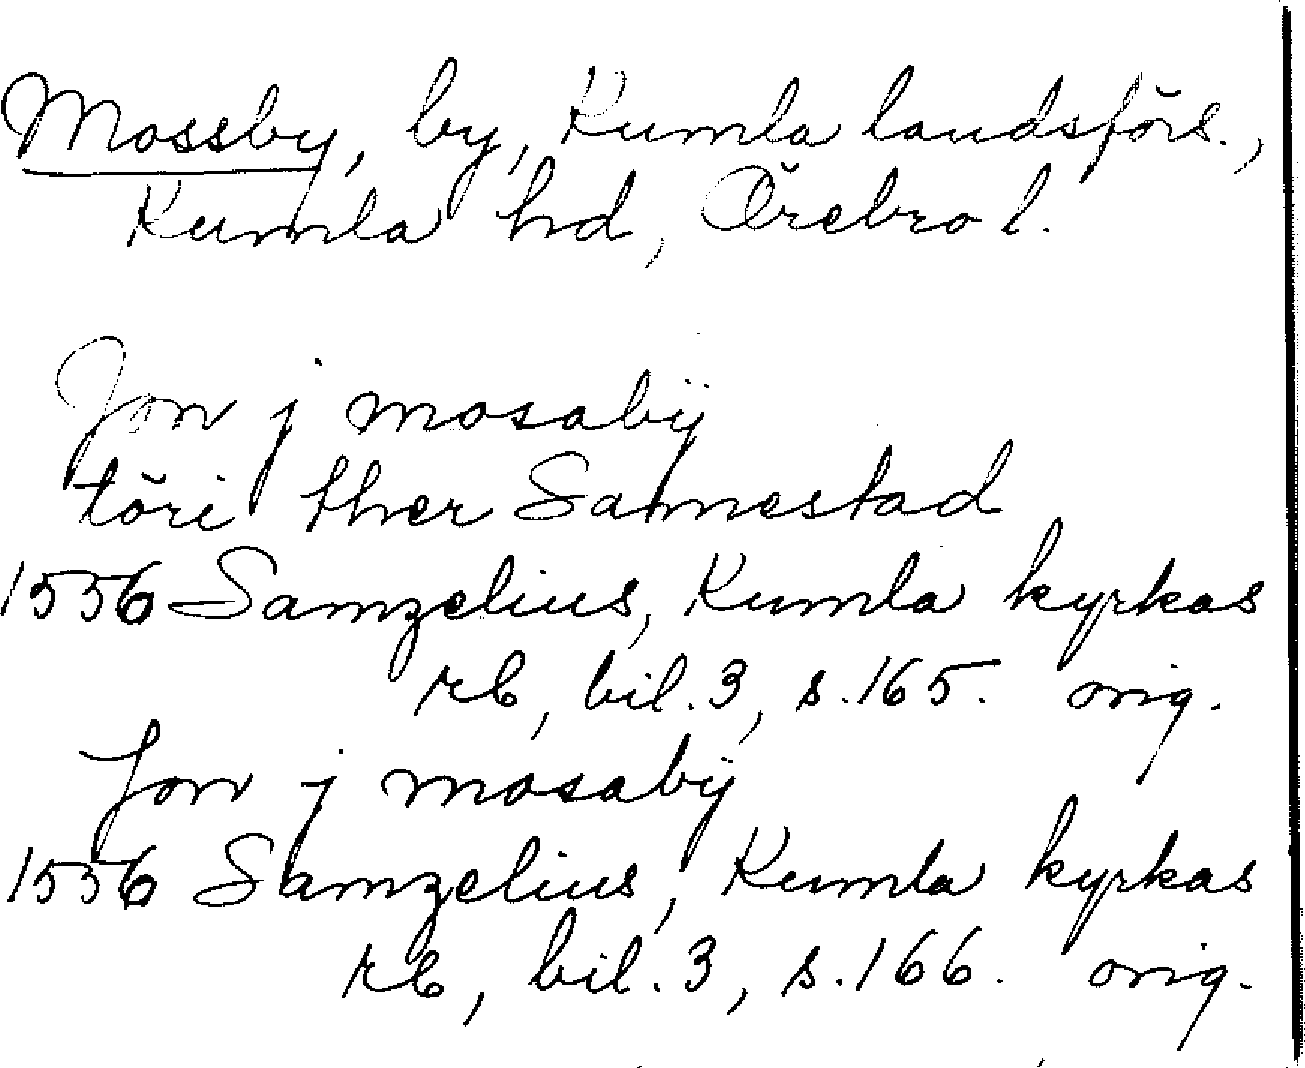 Mossby, by, Kumla landsförs.,
Kumla hd, Örebro l.
Jon j mosabÿ
töri ther Sannestad
1556 Samzelius, Kumla kyrkas
rb, bil. 3, s. 165. orig.
Jon j mosabÿ
1556 Samzelius, Kumla kyrkas
rb, bil. 3, s. 166. orig.